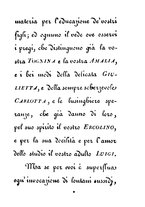 materia per l'educazione de' vostri
figlj, ed ognuno li vede ove osservi
i pregi, che distinguono già la vo-
stra TOGNINA e la vostra AMALIA,
e i bei modi della delicata GIU-
LIETTA, e della sempre scherzevole
CARLOTTA, e le lusinghiere spe-
ranze, che già danno di loro,
pel suo spirito il vostro ERCOLINO,
e per la sua docilità e per l'amor
dello studio il vostro adulto LUIGI.
Ma se per voi è superflua
ogni invocazione di lontani sussidj,